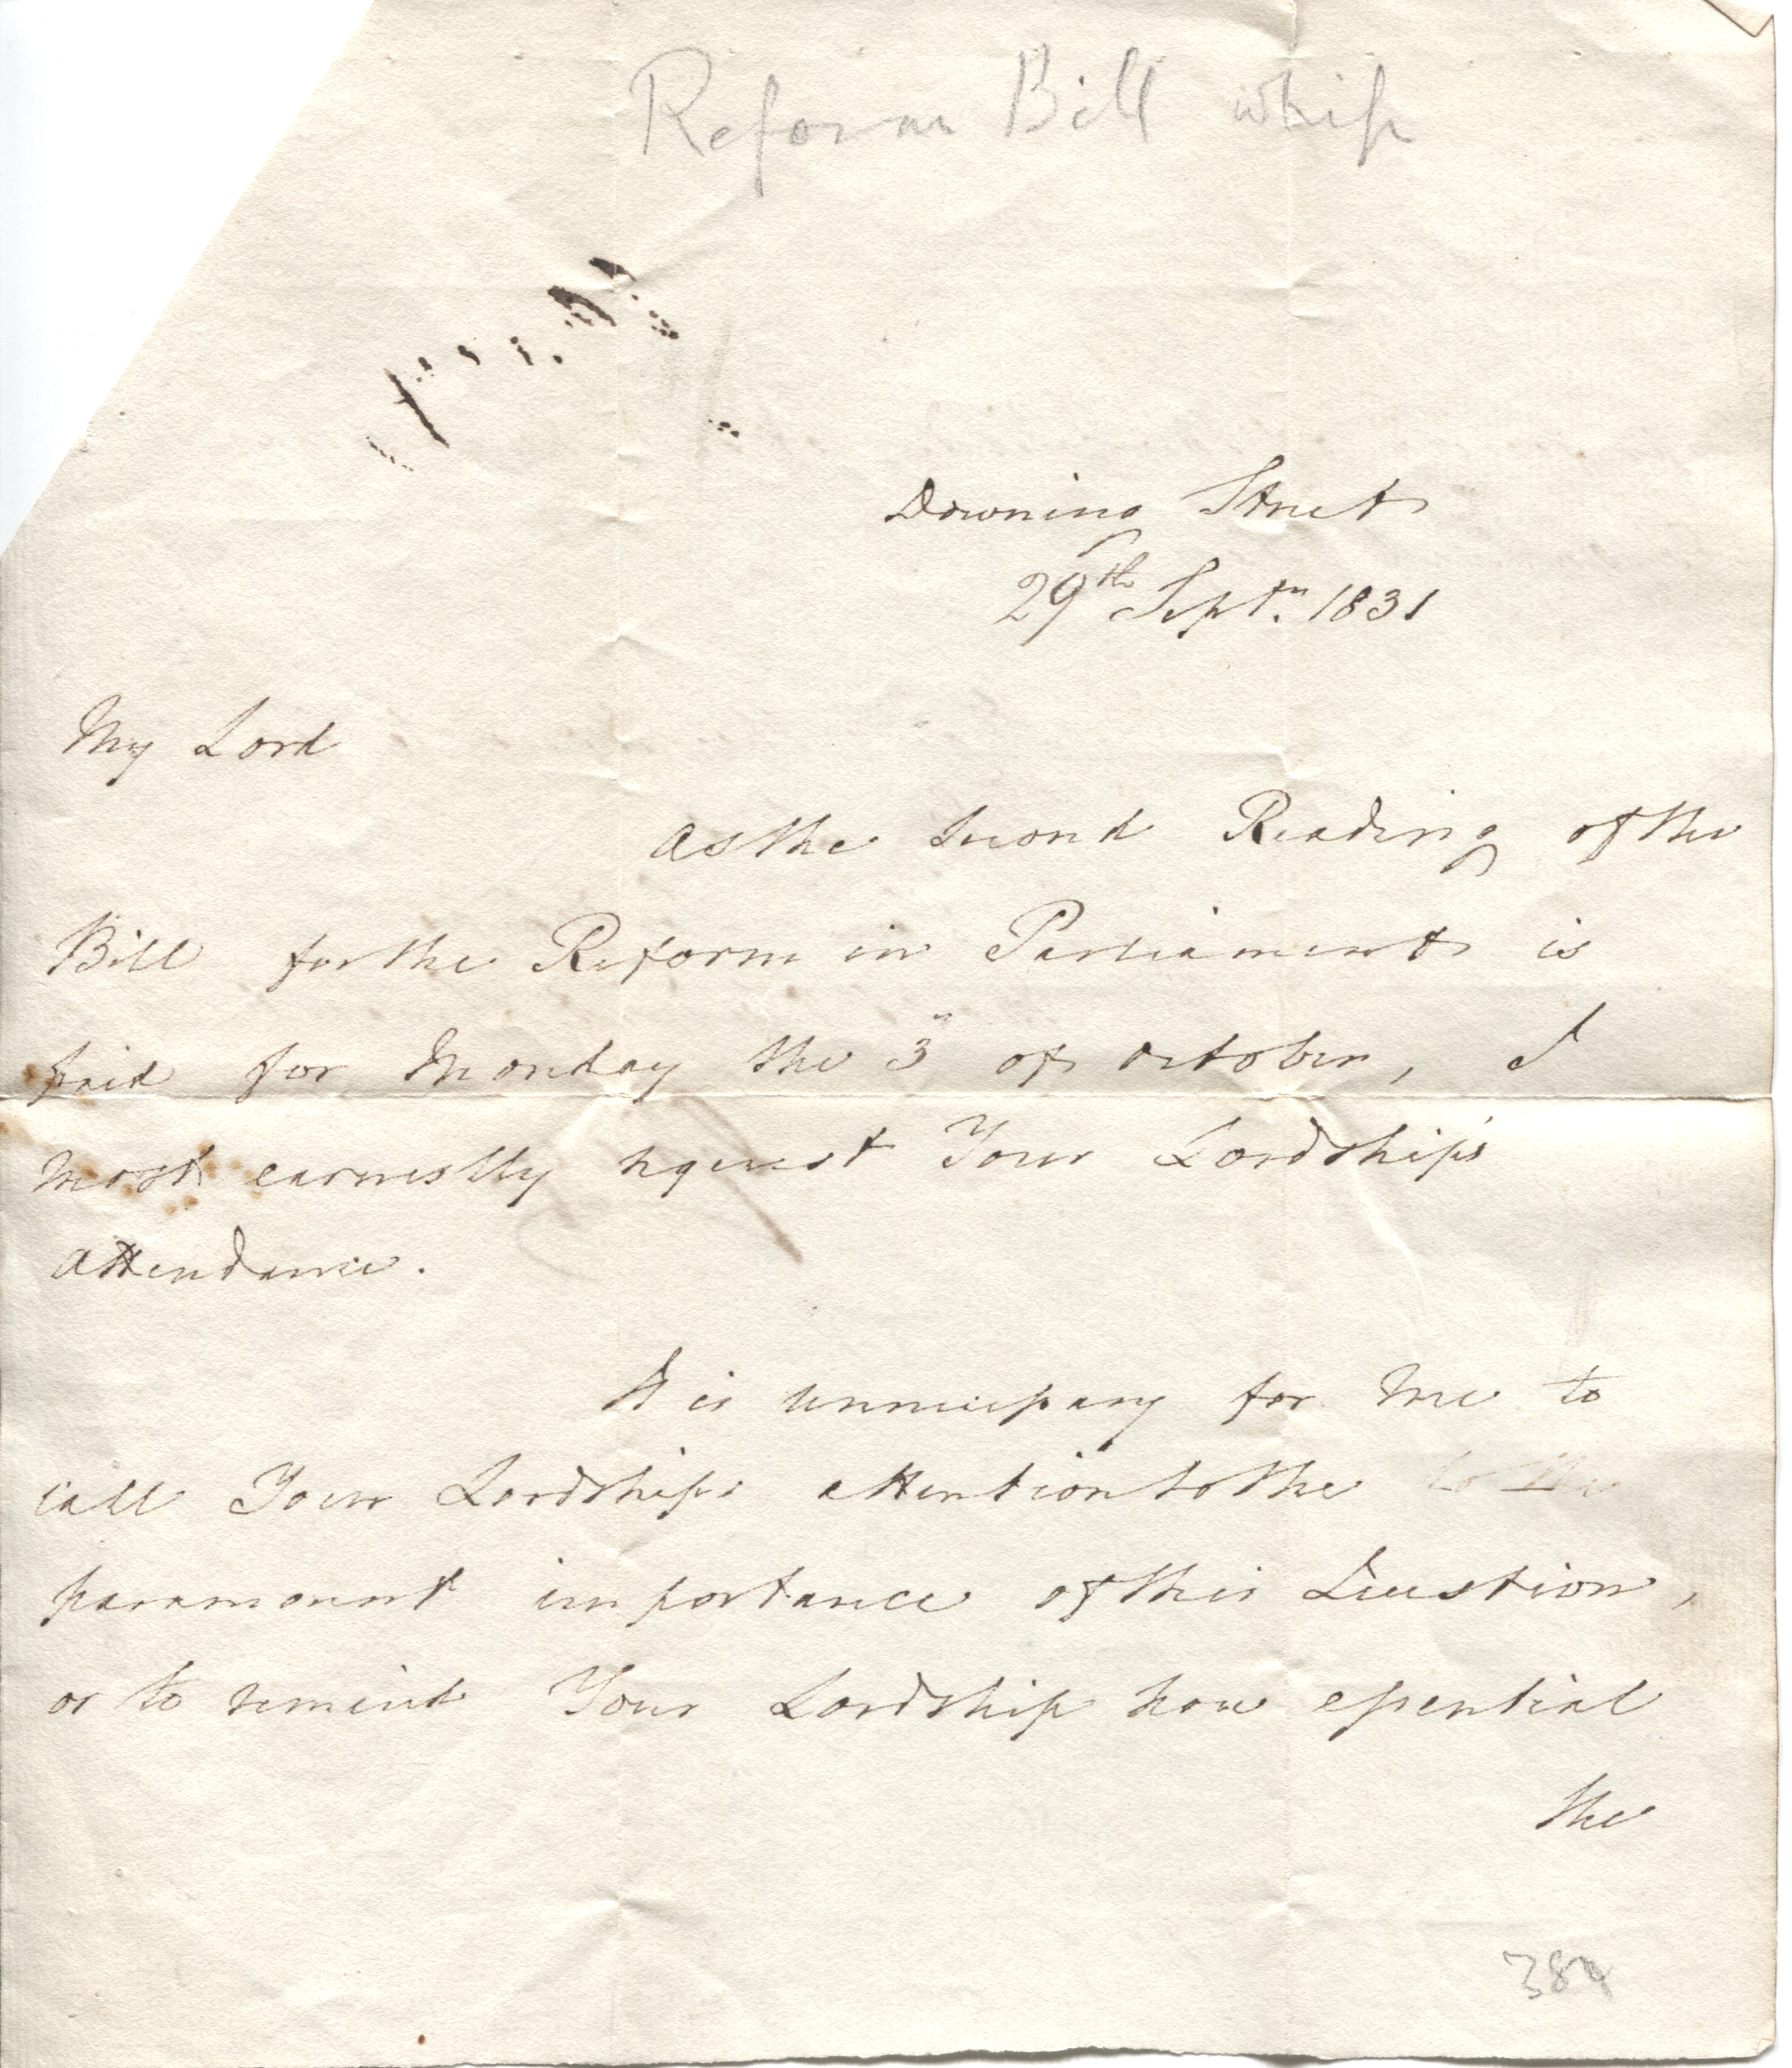 Reform Bill whip
Downing Street
29th Septr. 1831
My Lord
As the Second Reading of the
Bill for the Reform in Parliament is
fixed for Monday the 3d of October, I
most earnestly request Your Lordship's
attendance.
It is unnecessary for me to
call Your Lordship's attention to the to the
paramount importance of this Question,
or to remind Your Lordship how essential
the